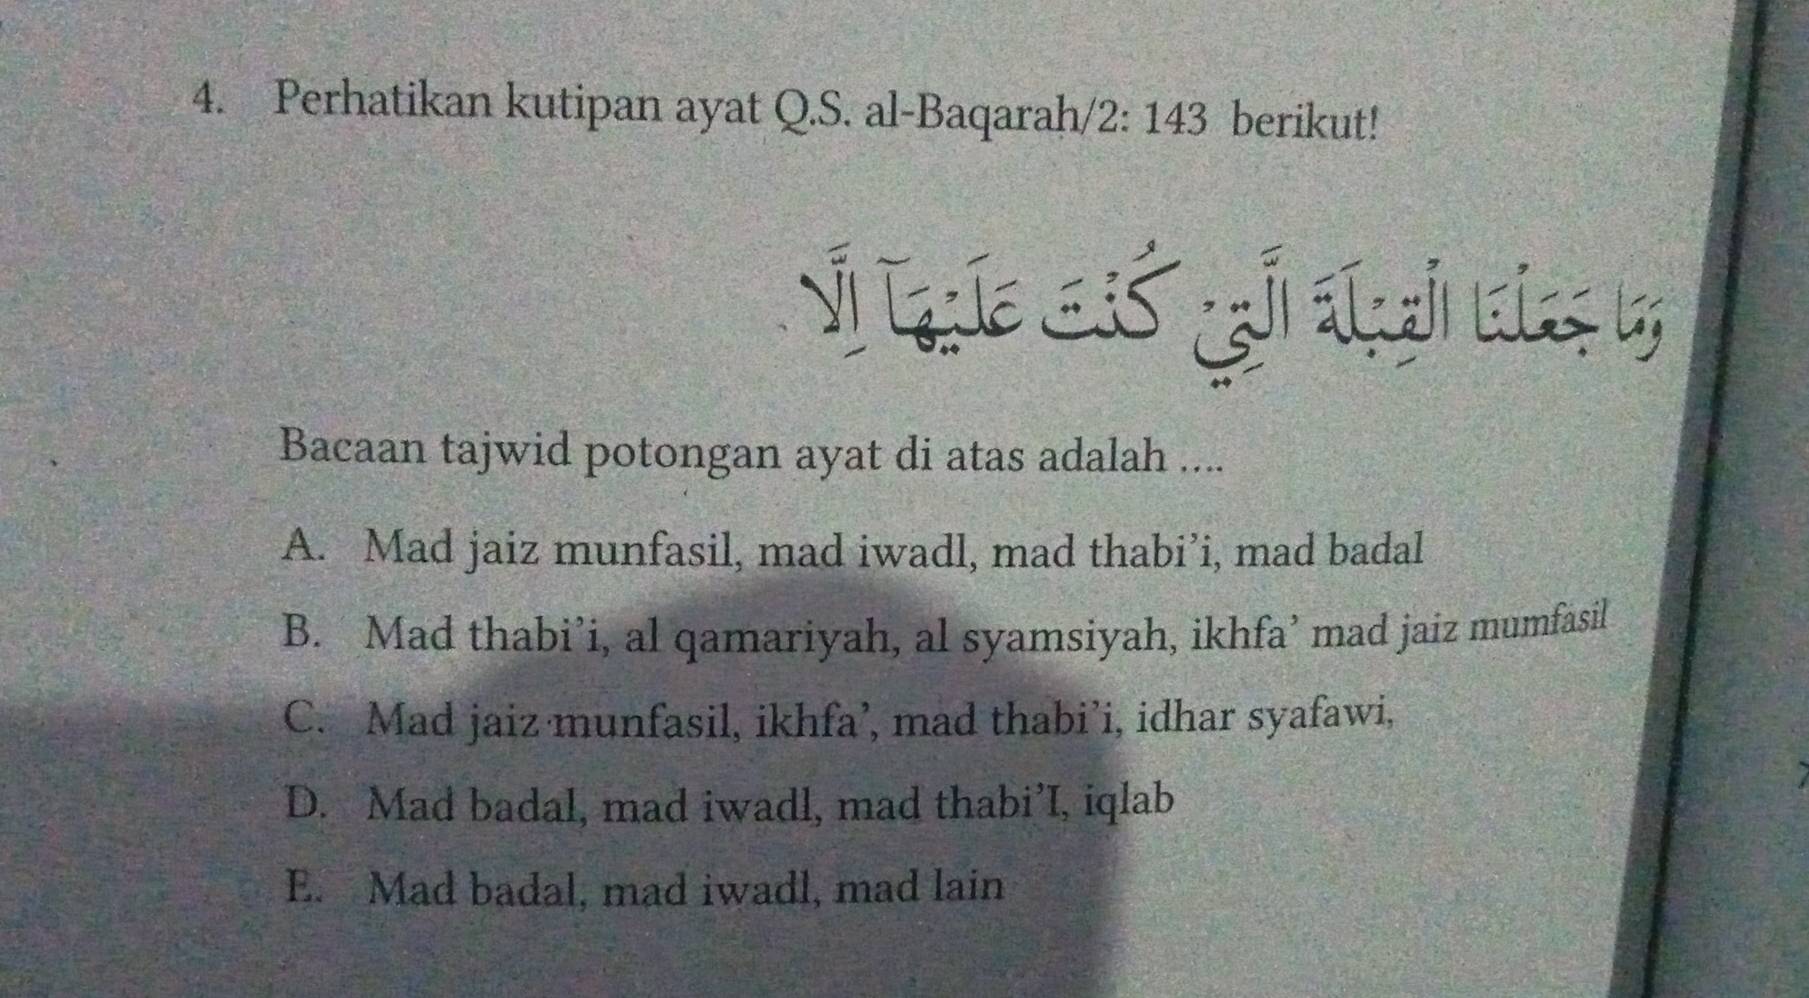 4. Perhatikan kutipan ayat Q.S. al-Baqarah/2: 143 berikut!
وَمَا جَعَلْنَا الْقِبْلَةَ الَّتِيْ كُنْتَ عَلَيْهَآ اِلَّا
Bacaan tajwid potongan ayat di atas adalah ....
A. Mad jaiz munfasil, mad iwadl, mad thabi’i, mad badal
B. Mad thabi’i, al qamariyah, al syamsiyah, ikhfa’ mad jaiz mumfasil
C. Mad jaiz munfasil, ikhfa’, mad thabi’i, idhar syafawi,
D. Mad badal, mad iwadl, mad thabi’I, iqlab
E. Mad badal, mad iwadl, mad lain